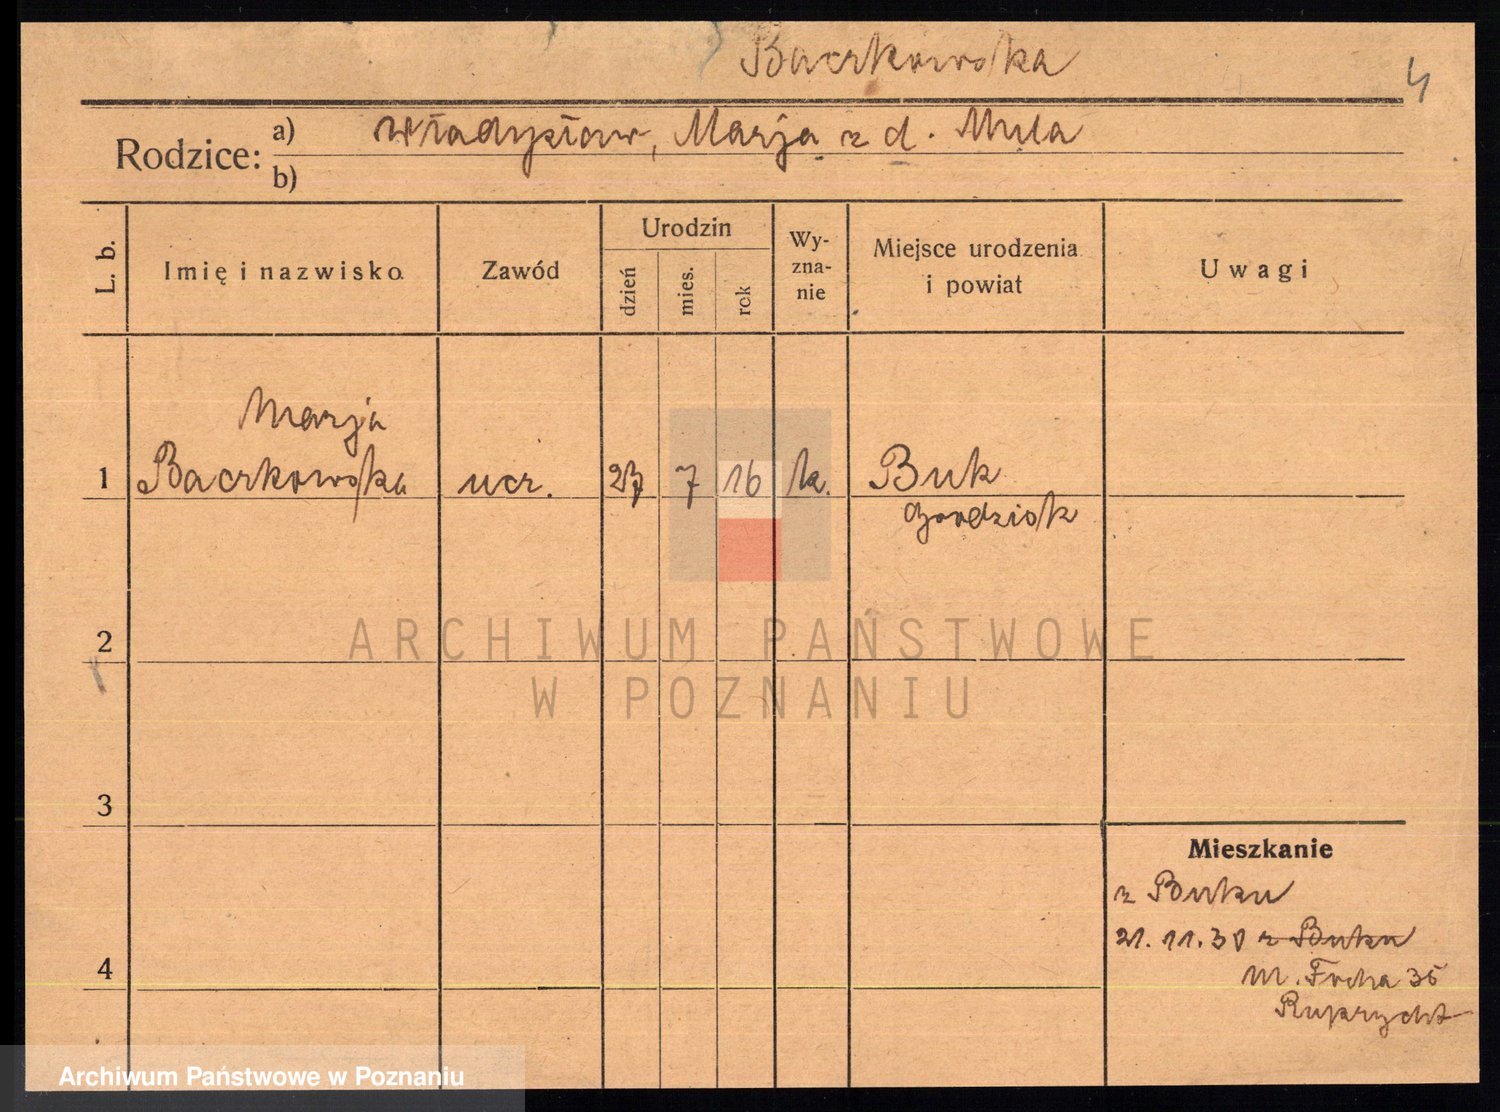 Baczkowska
4
Rodzice: a) Władysław, Marja z d. Mula
b)
L. b.
Imię i nazwisko
Zawód
Urodzin
dzień
mies.
rok
Wy-
zna-
nie
Miejsce urodzenia
i powiat
Uwagi
Marja
1 Baczkowska ucz. 23 7 16 k. Buk
Grodzisk
2
3
4
Mieszkanie
z Buku
21.11.30 z Buku
m. Focha 35
Ruprycht
ARCHIWUM PAŃSTWOWE
W POZNANIU
Archiwum Państwowe w Poznaniu